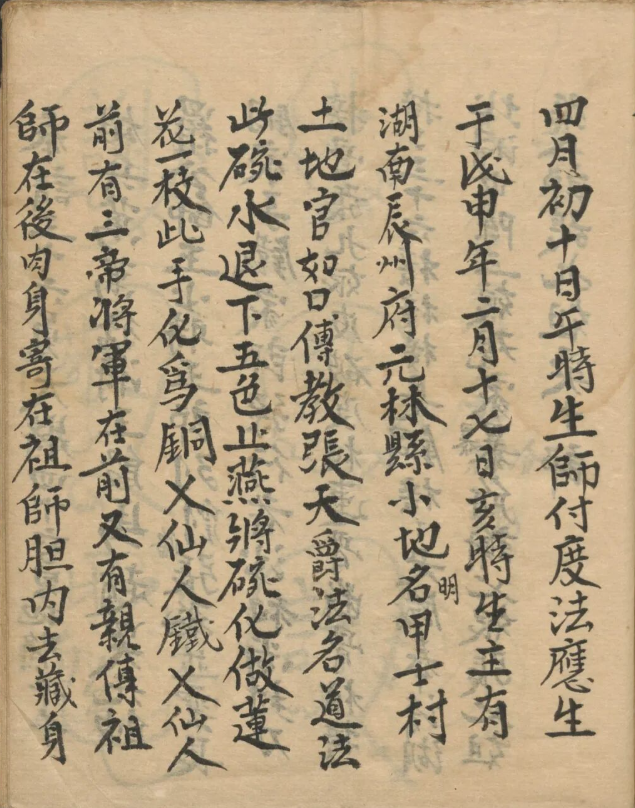 四月初十日午時生師付度法應生
于戊申年二月十七日亥時生主有
湖南辰州府元林縣小地名明甲士村
土地官如口傳教張天爵法名道法
此碗水退下五色止燕將碗化做蓮
花一枝此手化爲銅乂仙人鐵乂仙人
前有三帝將軍在前又有親傳祖
師在後肉身寄在祖師胆内去藏身